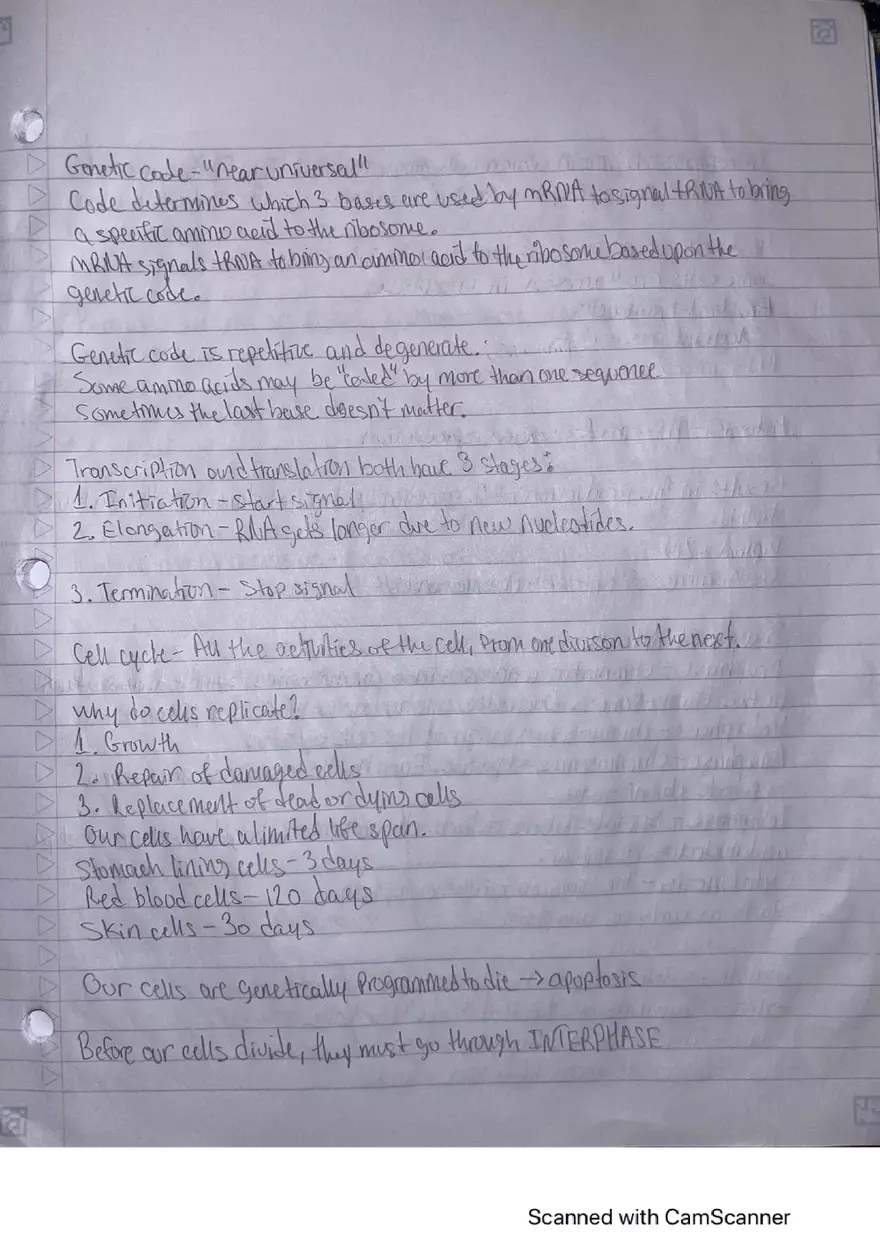 Genetic code - "near universal"
Code determines which 3 bases are used by mRNA to signal tRNA to bring
a specific amino acid to the ribosome.
mRNA signals tRNA to bring an amino acid to the ribosome based upon the
genetic code.
Genetic code is repetitive and degenerate.
Some amino acids may be "coded" by more than one sequence
Sometimes the last base doesn't matter.
Transcription and translation both have 3 stages:
1. Initiation - start signal
2. Elongation - RNA gets longer due to new nucleotides.
3. Termination - Stop signal
Cell cycle - All the activities of the cell, from one divison to the next.
Why do cells replicate?
1. Growth
2. Repair of damaged cells
3. Replacement of dead or dying cells
Our cells have a limited life span.
Stomach lining cells - 3 days
Red blood cells - 120 days
Skin cells - 30 days
Our cells are genetically Programmed to die → apoptosis
Before our cells divide, they must go through INTERPHASE
Scanned with CamScanner